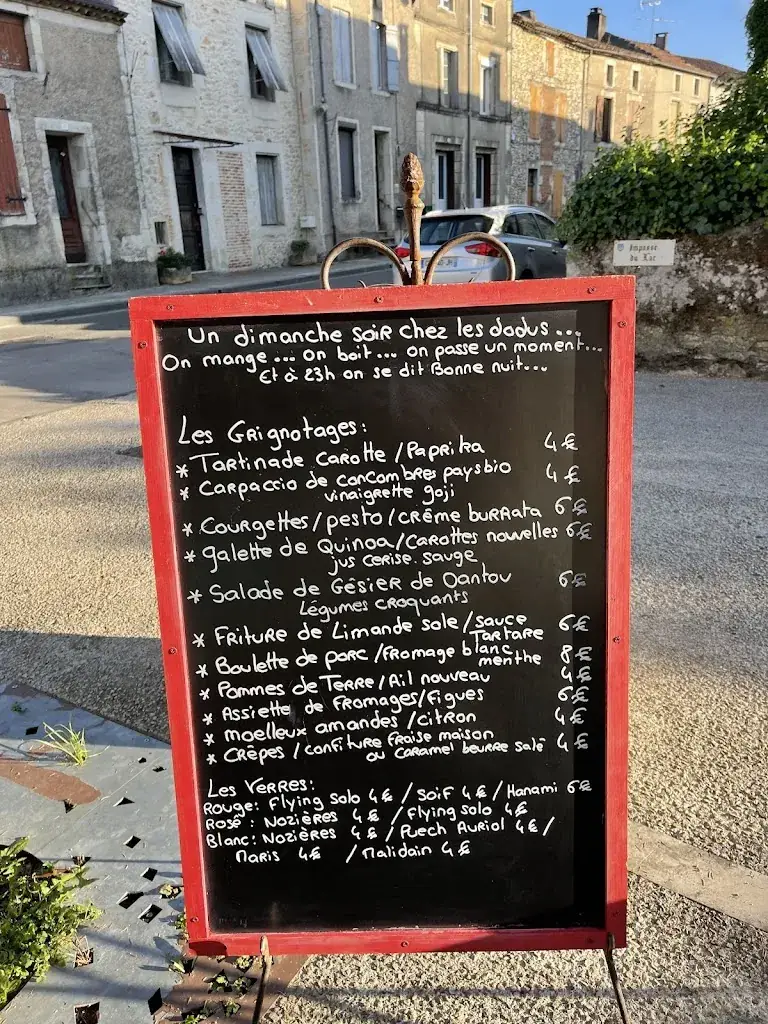 Impasse
du Lac
Un dimanche soir chez les dodus...
On mange... on boit... on passe un moment...
Et à 23h on se dit Bonne nuit...
Les Grignotages:
* Tartinade carotte / Paprika 4€
* Carpaccio de concombres pays bio 4€
vinaigrette goji
* Courgettes / pesto / crème burrata 6€
* galette de Quinoa / carottes nouvelles 6€
jus cerise. sauge
* Salade de Gésier de Dantou 6€
Légumes croquants
* Friture de Limande sole / sauce 6€
Tartare
* Boulette de porc / fromage blanc 8€
menthe
* Pommes de Terre / Ail nouveau 4€
* Assiette de fromages / figues 6€
* moelleux amandes / citron 4€
* Crêpes / confiture fraise maison
ou caramel beurre salé 4€
Les Verres:
Rouge: Flying Solo 4€ / Soif 4€ / Hanami 6€
Rosé: Nozières 4€ / Flying solo 4€
Blanc: Nozières 4€ / Puech Auriol 4€ /
Maris 4€ / Malidain 4€